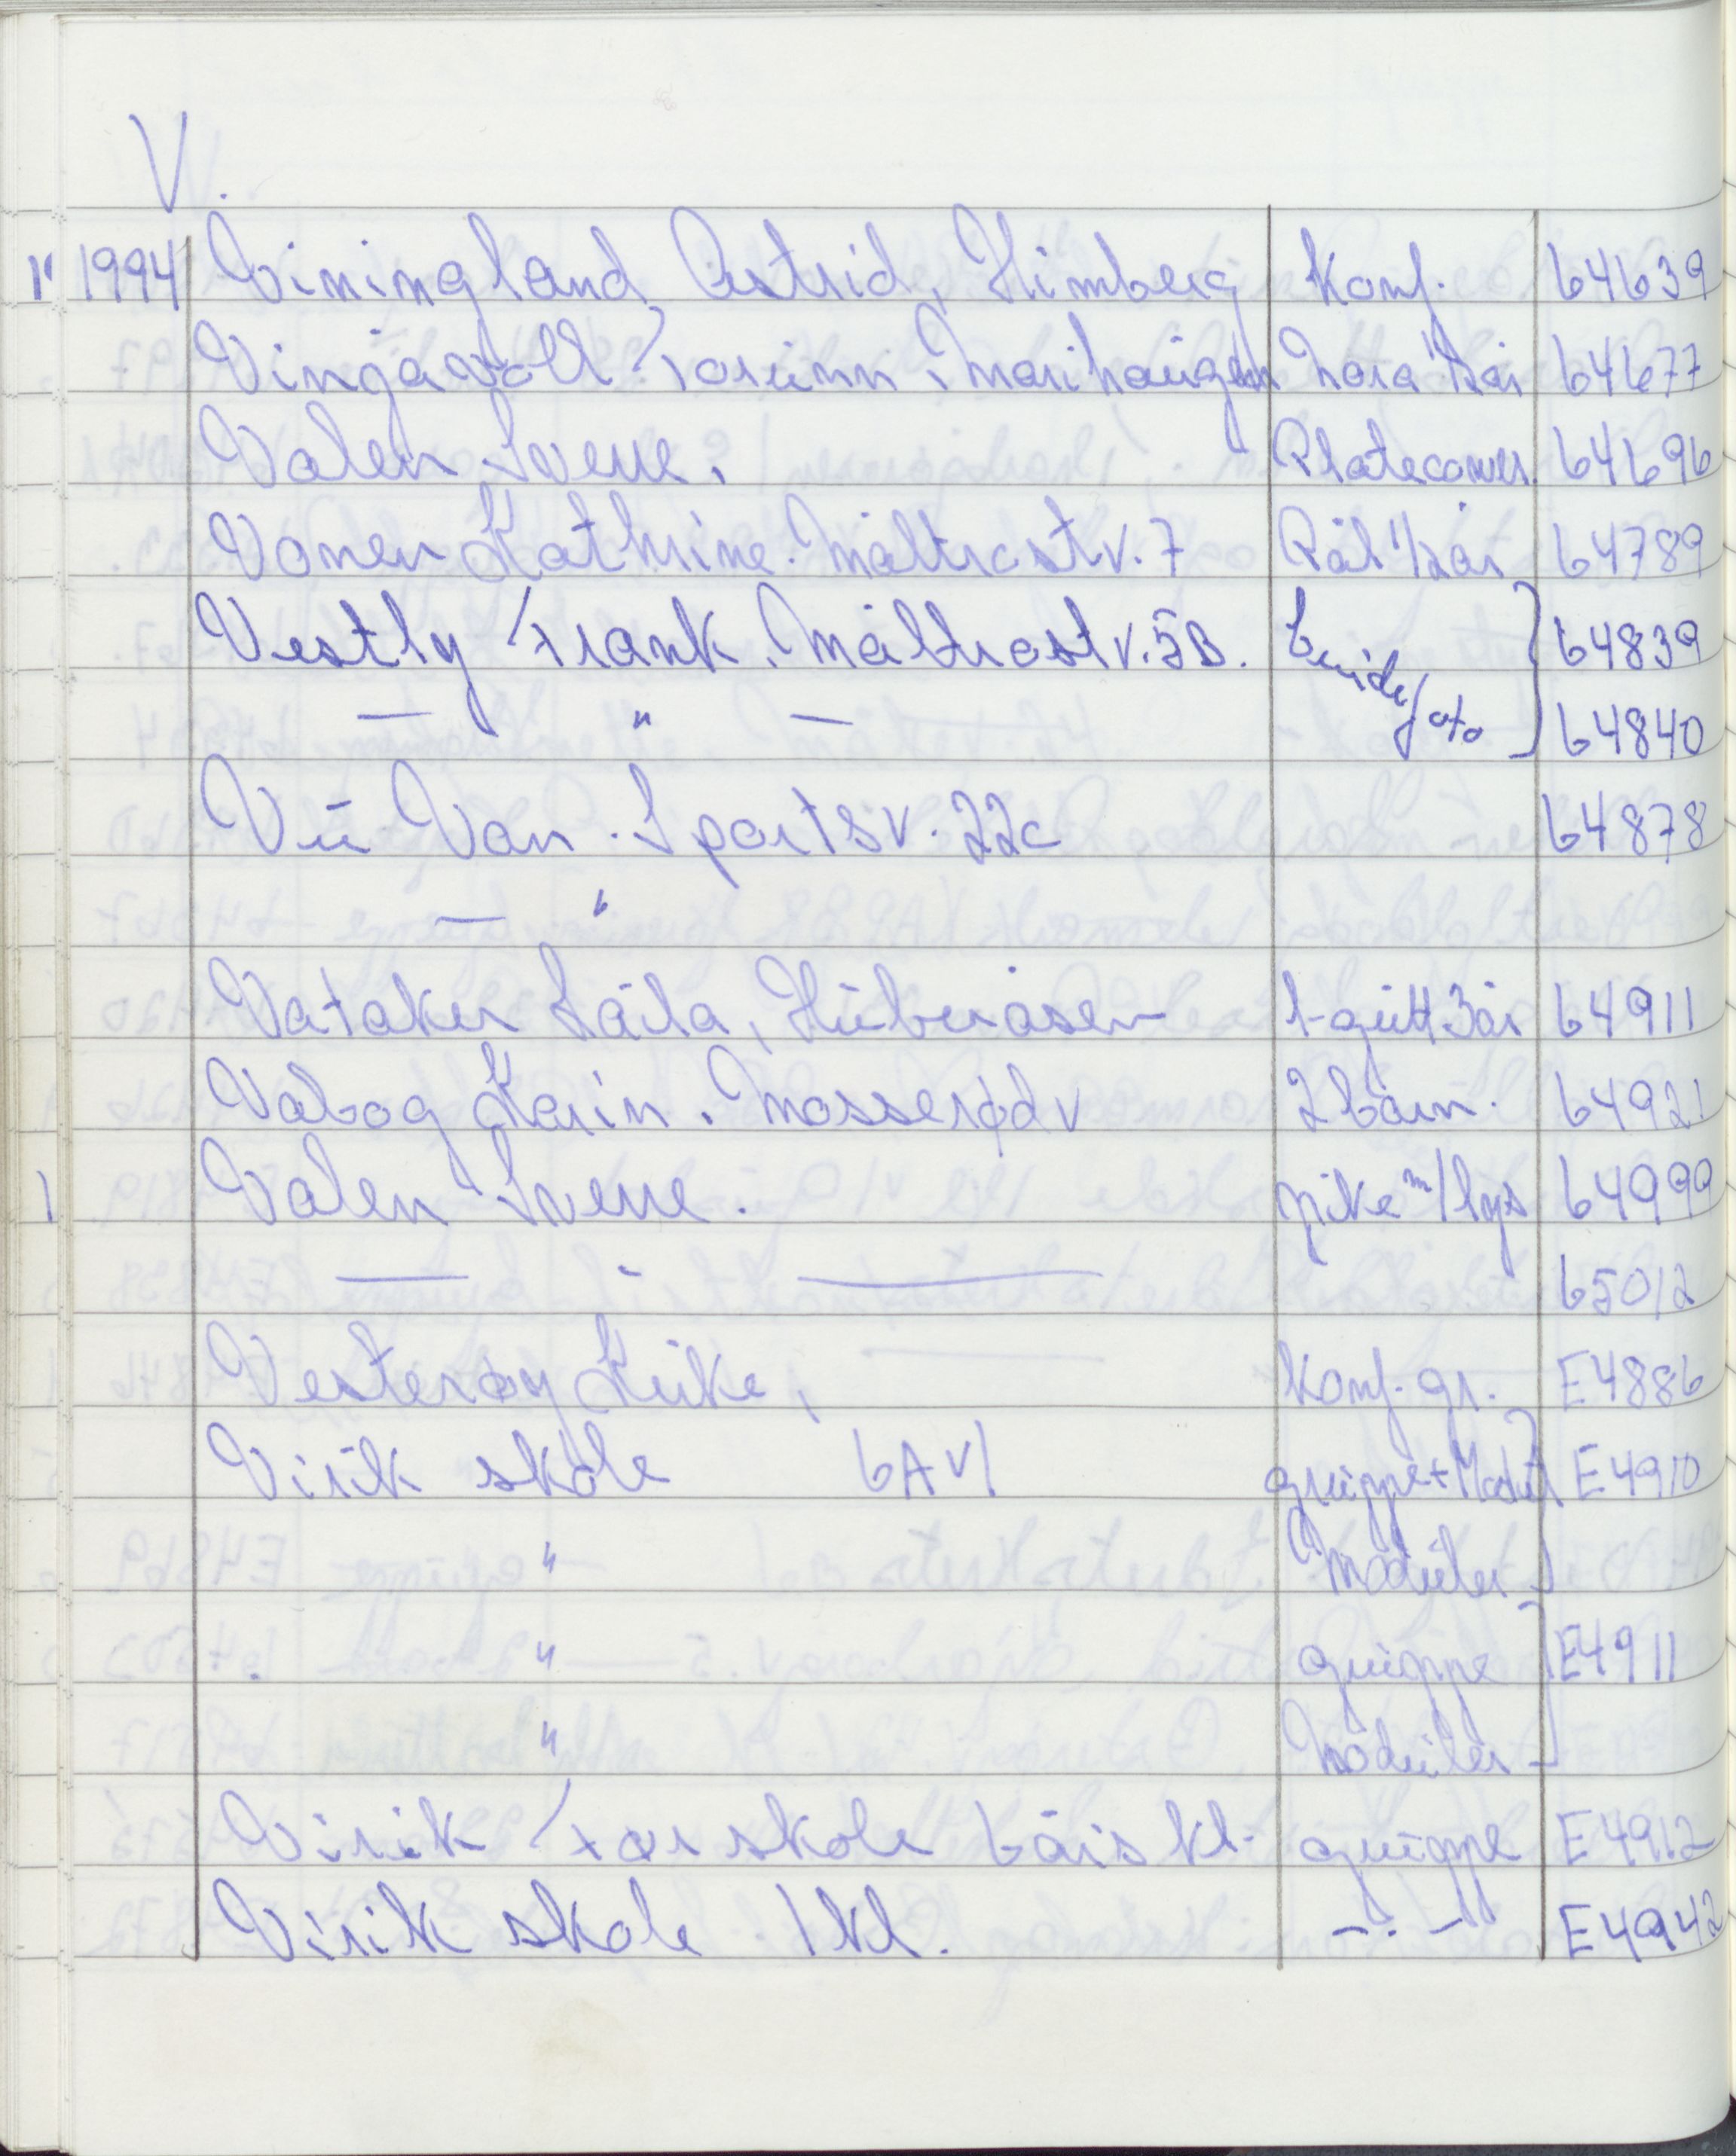 V.
1 1994 Viningland Astrid, Himberg Konf. 64639
Vingavoll Torunn, Marihaugen Nora 1/2 år 64677
Valen Sverre. Platecover 64696
Vonen Kathrine. Måltrostv. 7 Pål 1/2 år 64789
Vestly Frank. Måltrostv. 5B. Brudefoto 64839
— " — 64840
Vu Van. Sportsv. 22c 64878
— "
Vataker Laila, Huberåsen 1 gutt 3 år 64911
Vabog Karin. Mosserødv 2 barn. 64921
1 Valen Sverre. pike m/lys 64999
— " — 65012
Vesterøy Kirke, Konf. gr. E4886
Virik skole 6A V/ gruppe + Moduler E4910
" Moduler
" gruppe E4911
" Moduler
Virik Førskole 6 års kl. gruppe E4912
Virik skole 1 kl. - . - E4942